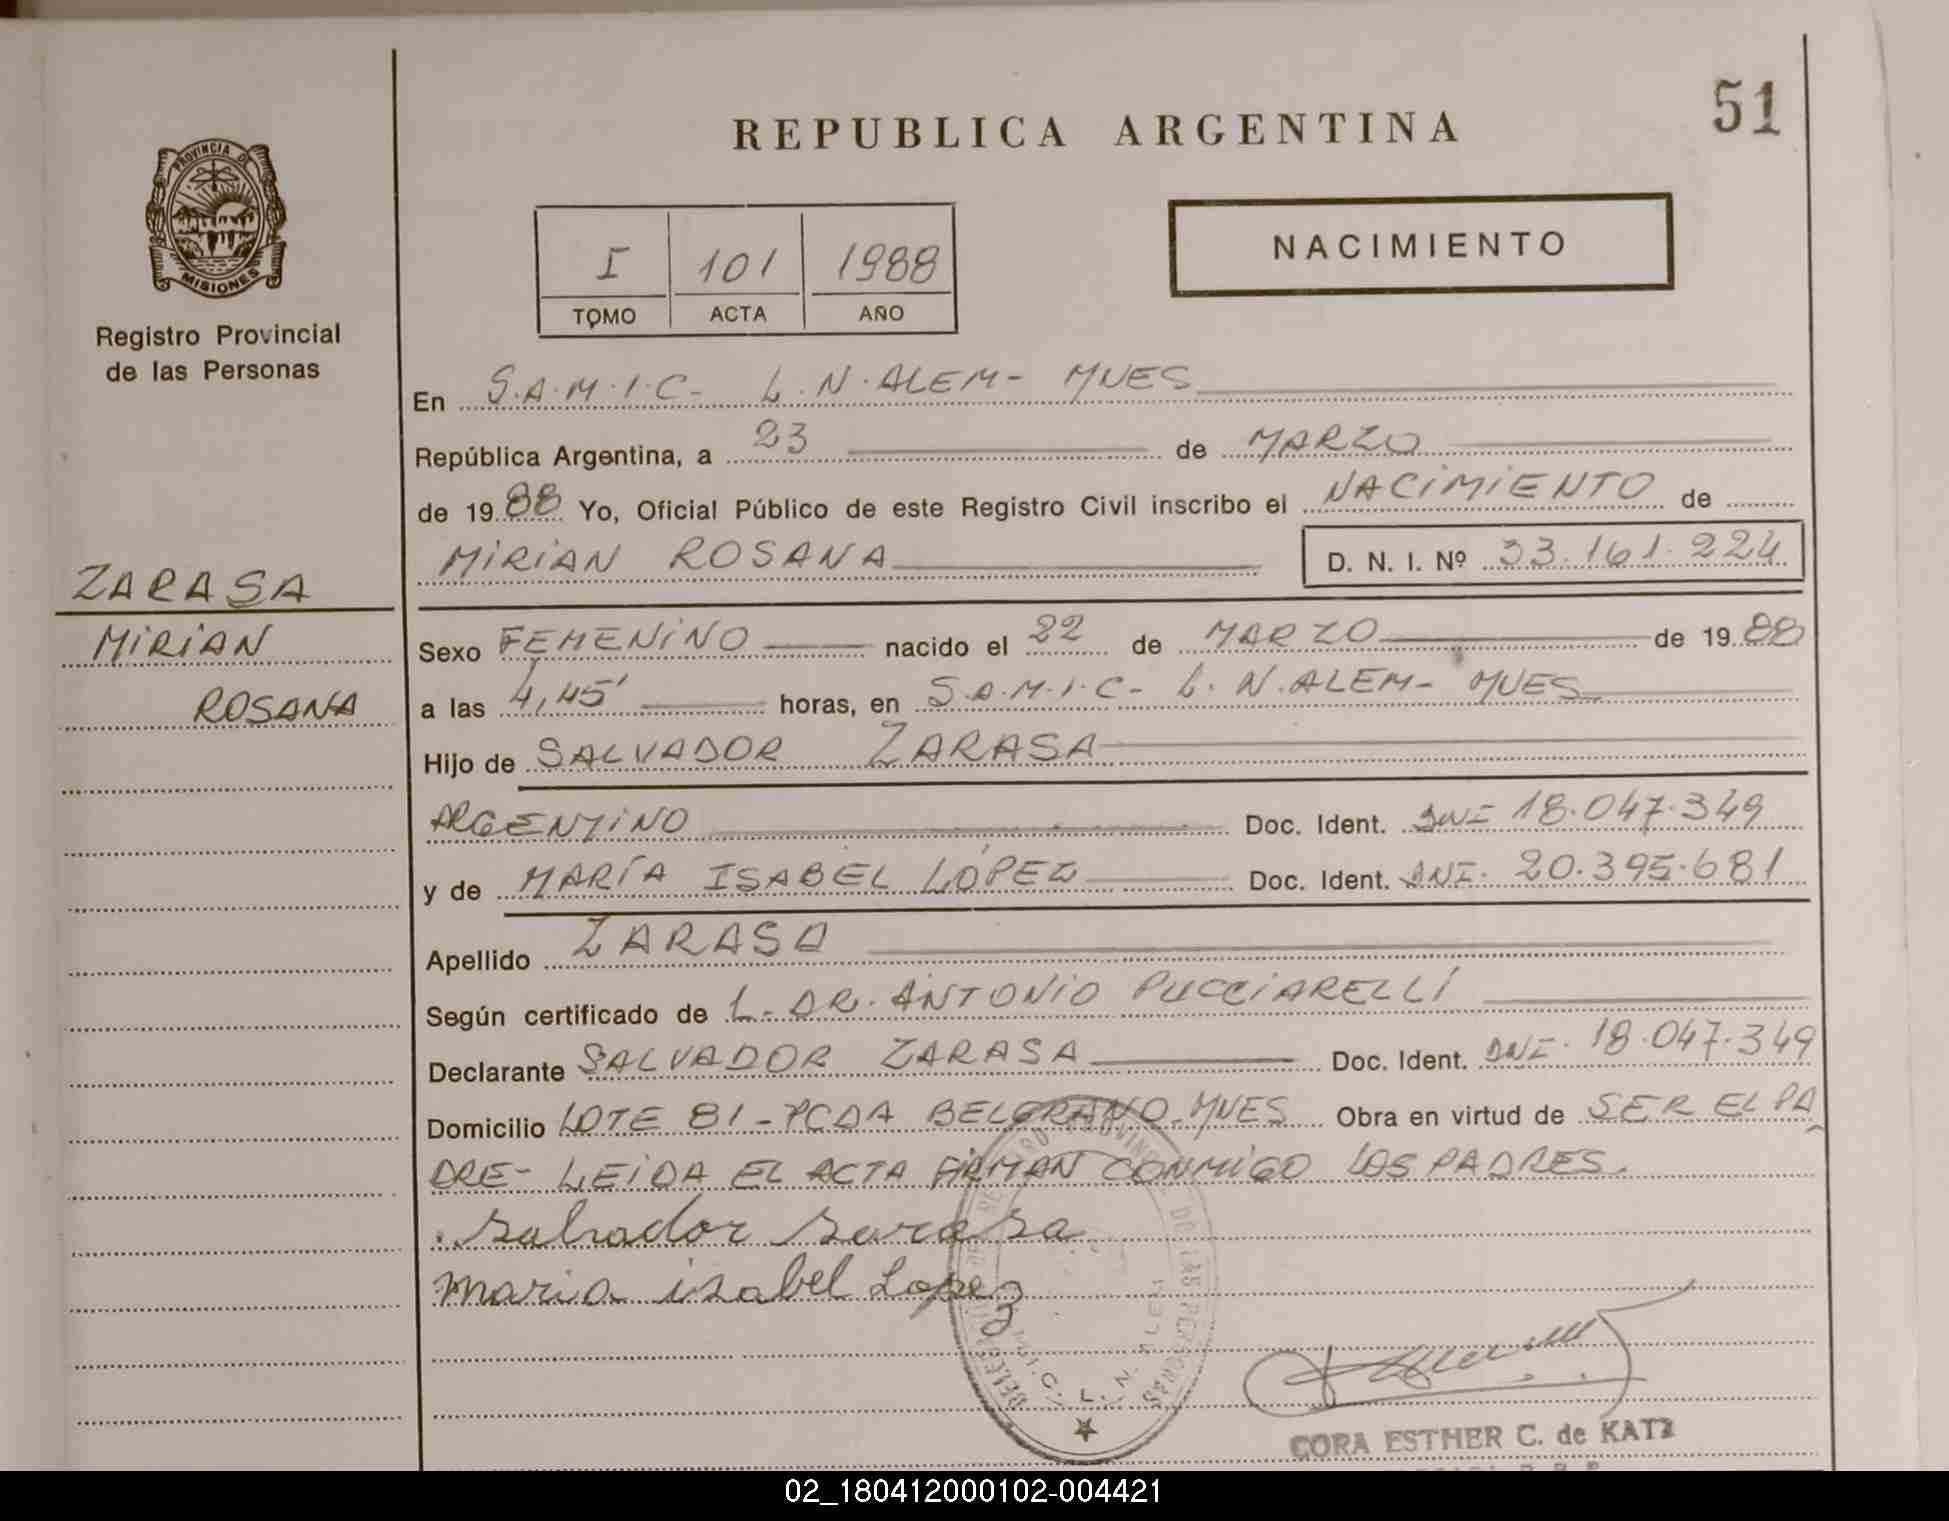 51
REPUBLICA ARGENTINA
PROVINCIA DE
MISIONES
Registro Provincial
de las Personas
I 101 1988
TOMO ACTA AÑO
NACIMIENTO
En S.A.M.I.C- L.N.ALEM- MNES
República Argentina, a 23 de MARZO
de 1988 Yo, Oficial Público de este Registro Civil inscribo el NACIMIENTO de
MIRIAN ROSANA D. N. I. Nº 33.161.224
ZARASA
MIRIAN
ROSANA
Sexo FEMENINO nacido el 22 de MARZO de 1988
a las 4,45' horas, en S.A.M.I.C- L.N.ALEM- MNES
Hijo de SALVADOR ZARASA
ARGENTINO Doc. Ident. DNI 18.047.349
y de MARÍA ISABEL LÓPEZ Doc. Ident. DNI. 20.395.681
Apellido ZARASA
Según certificado de L- DR. ANTONIO PUCCIARELLI
Declarante SALVADOR ZARASA Doc. Ident. DNI. 18.047.349
Domicilio LOTE 81-PCDA BELGRANO-MNES Obra en virtud de SER EL PA
DRE- LEIDA EL ACTA FIRMAN CONMIGO LOS PADRES.
Salvador Sarasa
Maria isabel Lopez
L. N. ALEM
CORA ESTHER C. de KATZ
02_180412000102-004421